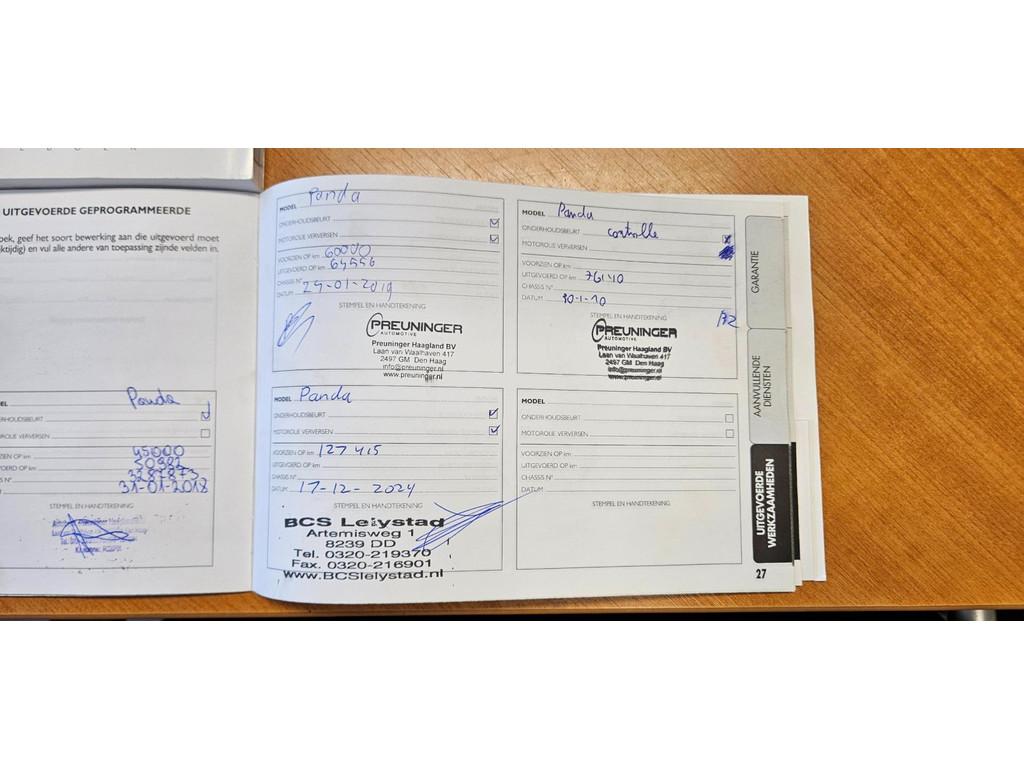 UITGEVOERDE GEPROGRAMMEERDE
oek, geef het soort bewerking aan die uitgevoerd moet
ktijdig) en vul alle andere van toepassing zijnde velden in.
EL Panda
ERHOUDSBEURT
MOTOROLIE VERVERSEN
ZIEN OP km 45000
VOERD OP km 50982
SIS N° 3287873
31-01-2018
STEMPEL EN HANDTEKENING
MODEL Panda
ONDERHOUDSBEURT
MOTOROLIE VERVERSEN
VOORZIEN OP km 60000
UITGEVOERD OP km 64556
CHASSIS N°
DATUM 29-01-2019
STEMPEL EN HANDTEKENING
PREUNINGER
AUTOMOTIVE
Preuninger Haagland BV
Laan van Waalhaven 417
2497 GM Den Haag
info@preuninger.nl
www.preuninger.nl
MODEL Panda
ONDERHOUDSBEURT controlle
MOTOROLIE VERVERSEN
VOORZIEN OP km
UITGEVOERD OP km
CHASSIS N°
DATUM
STEMPEL EN HANDTEKENING
PREUNINGER
AUTOMOTIVE
Preuninger Haagland BV
Laan van Waalhaven 417
2497 GM Den Haag
info@preuninger.nl
www.preuninger.nl
MODEL Panda
ONDERHOUDSBEURT
MOTOROLIE VERVERSEN
VOORZIEN OP km 127415
UITGEVOERD OP km
CHASSIS N°
DATUM 17-12-2024
STEMPEL EN HANDTEKENING
BCS Lelystad
Artemisweg 1
8239 DD
Tel. 0320-219370
Fax. 0320-216901
www.BCSlelystad.nl
MODEL
ONDERHOUDSBEURT
MOTOROLIE VERVERSEN
VOORZIEN OP km
UITGEVOERD OP km
CHASSIS N°
DATUM
STEMPEL EN HANDTEKENING
GARANTIE
AANVULLENDE
DIENSTEN
UITGEVOERDE
WERKZAAMHEDEN
27